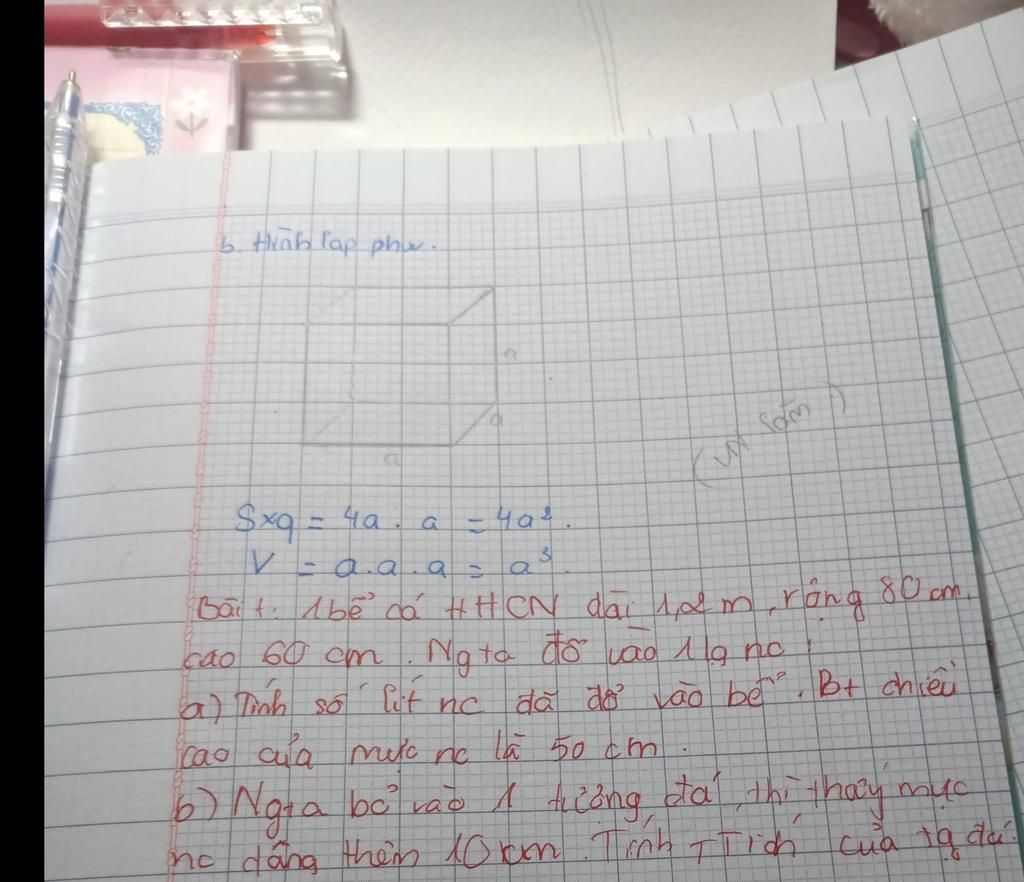 b. Hình lập phư.
a
a
a
Sxq = 4a . a = 4a².
V = a.a.a = a³.
Bài 1: 1 bể cá HHCN dài 1,2 m, rộng 80 cm,
cao 60 cm. Ng ta đổ vào 1 lg nc
a) Tính số lít nc đã đổ vào bể. Bt chiều
cao của mực nc là 50 cm.
b) Ng ta bỏ vào 1 tượng đá, thì thấy mực
nc dâng thêm 10 cm. Tính TTích của tg đá.